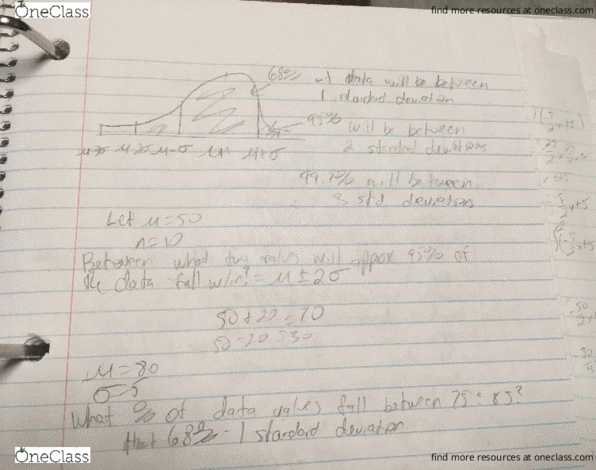 OneClass
find more resources at oneclass.com
68% of data will be between
1 standard deviation
95% will be between
2 standard deviations
μ-2σ μ-σ μ μ+σ
99.7% will be between
3 std deviations
Let μ=50
Between what two values will approx 95% of
the data fall w/in? = μ ± 2σ
50+20=70
50-20=30
μ=80
σ=5
What % of data values fall between 75 & 85?
68% - 1 standard deviation.
OneClass
find more resources at oneclass.com